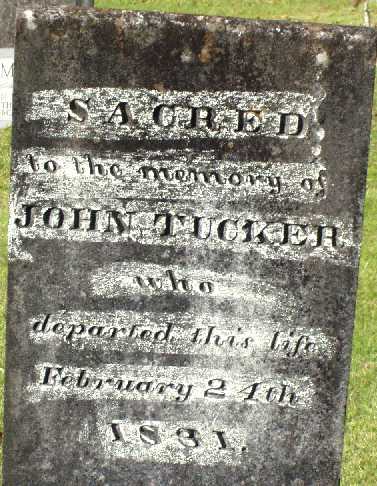 SACRED
to the memory of
JOHN TUCKER
who
departed this life
February 24th
1831.